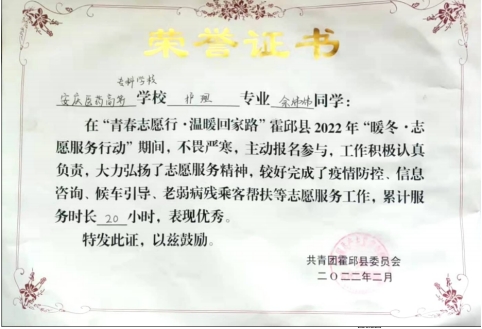 荣誉证书
专科学校
安庆医药高等学校 护理 专业 同学:
在“青春志愿行·温暖回家路”霍邱县2022年“暖冬·志
愿服务行动”期间,不畏严寒,主动报名参与,工作积极认真
负责,大力弘扬了志愿服务精神,较好完成了疫情防控、信息
咨询、候车引导、老弱病残乘客帮扶等志愿服务工作,累计服
务时长 20 小时,表现优秀。
特发此证,以兹鼓励。
共青团霍邱县委员会
二〇二二年二月